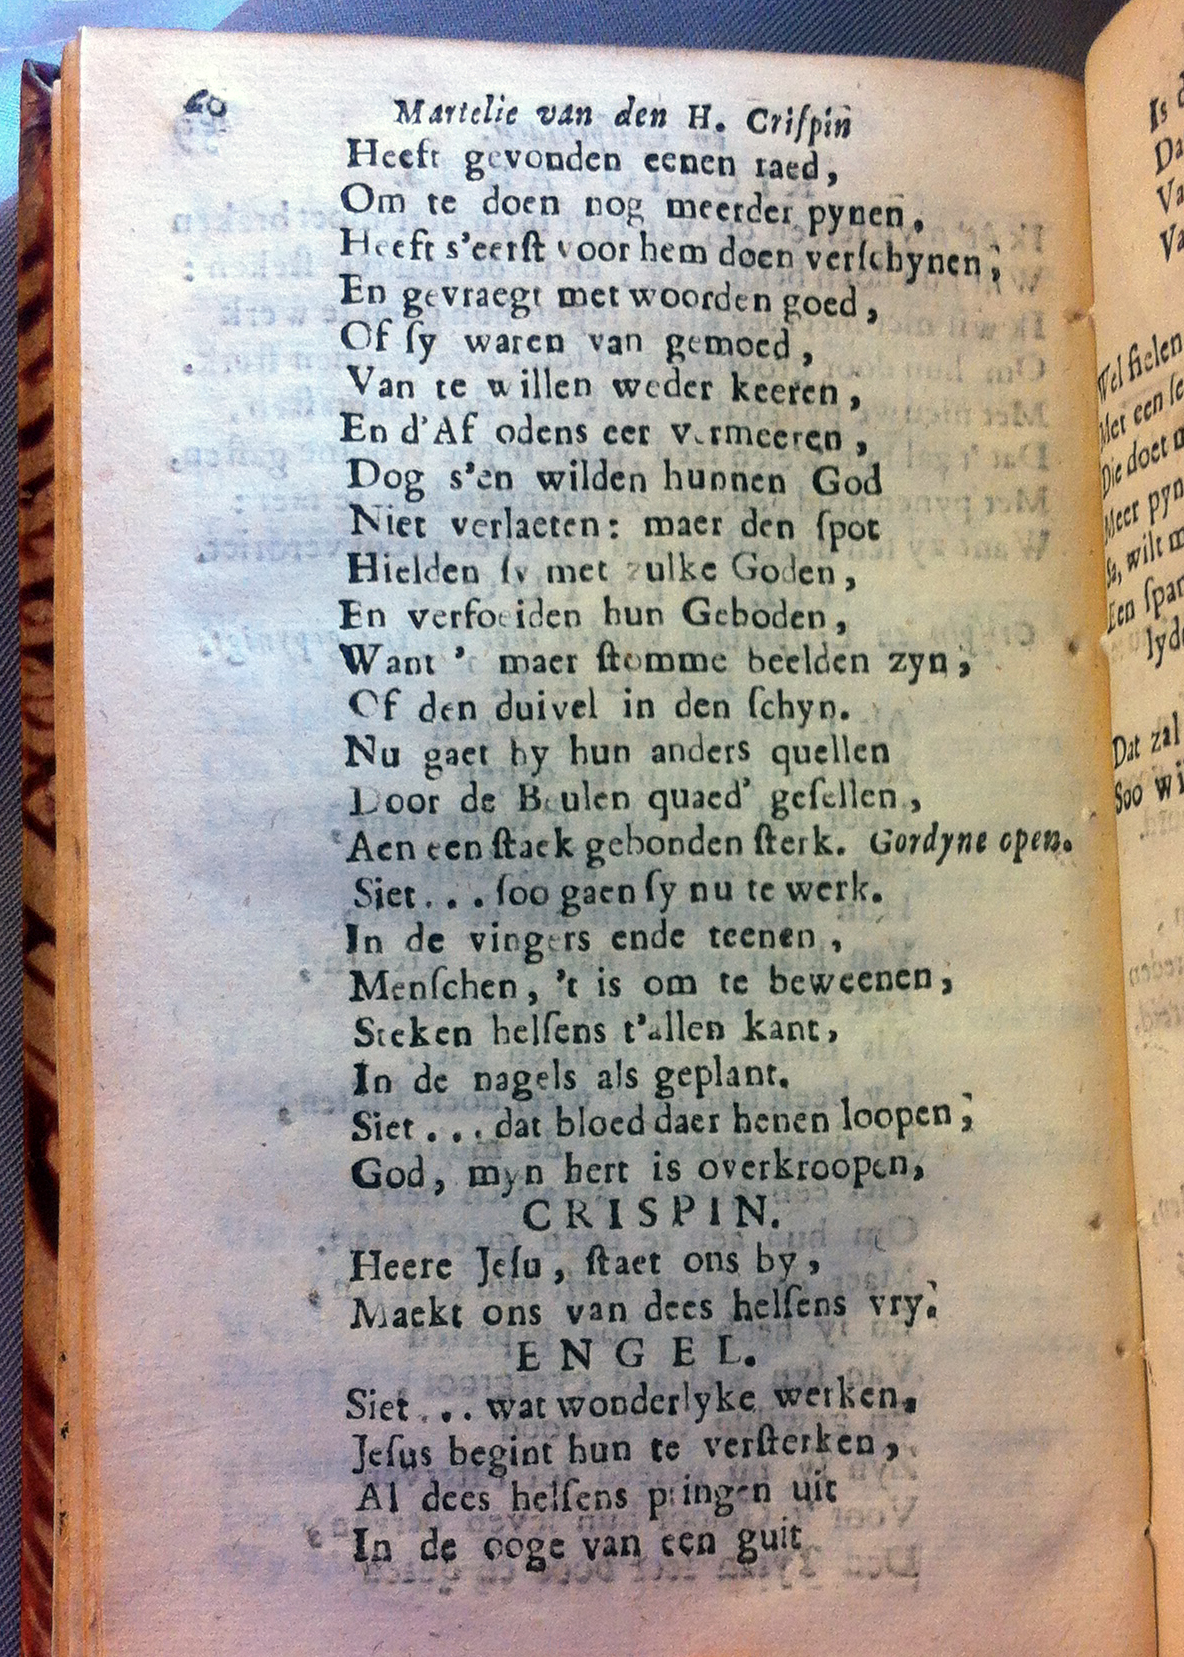 60 Martelie van den H. Criſpin
Heeft gevonden eenen raed,
Om te doen nog meerder pynen,
Heeft s'eerſt voor hem doen verſchynen;
En gevraegt met woorden goed,
Of ſy waren van gemoed,
Van te willen weder keeren,
En d'Af odens eer vermeeren,
Dog s'en wilden hunnen God
Niet verlaeten: maer den ſpot
Hielden ſy met zulke Goden,
En verfoeiden hun Geboden,
Want 't maer ſtomme beelden zyn;
Of den duivel in den ſchyn.
Nu gaet hy hun anders quellen
Door de Beulen quaed' geſellen,
Aen een ſtaek gebonden ſterk. Gordyne open.
Siet... ſoo gaen ſy nu te werk.
In de vingers ende teenen,
Menſchen, 't is om te beweenen,
Steken helſens t'allen kant,
In de nagels als geplant.
Siet... dat bloed daer henen loopen;
God, myn hert is overkroopen,
CRISPIN.
Heere Jeſu, ſtaet ons by,
Maekt ons van dees helſens vry.
ENGEL.
Siet... wat wonderlyke werken,
Jeſus begint hun te verſterken,
Al dees helſens pringen uit
In de ooge van een guit
Is
Da
Va
Va
Wel fielen
Met een ſc
Die doet
Meer pyn
Sa, wilt m
Een ſpar
lyd
Dat zal
Soo wi